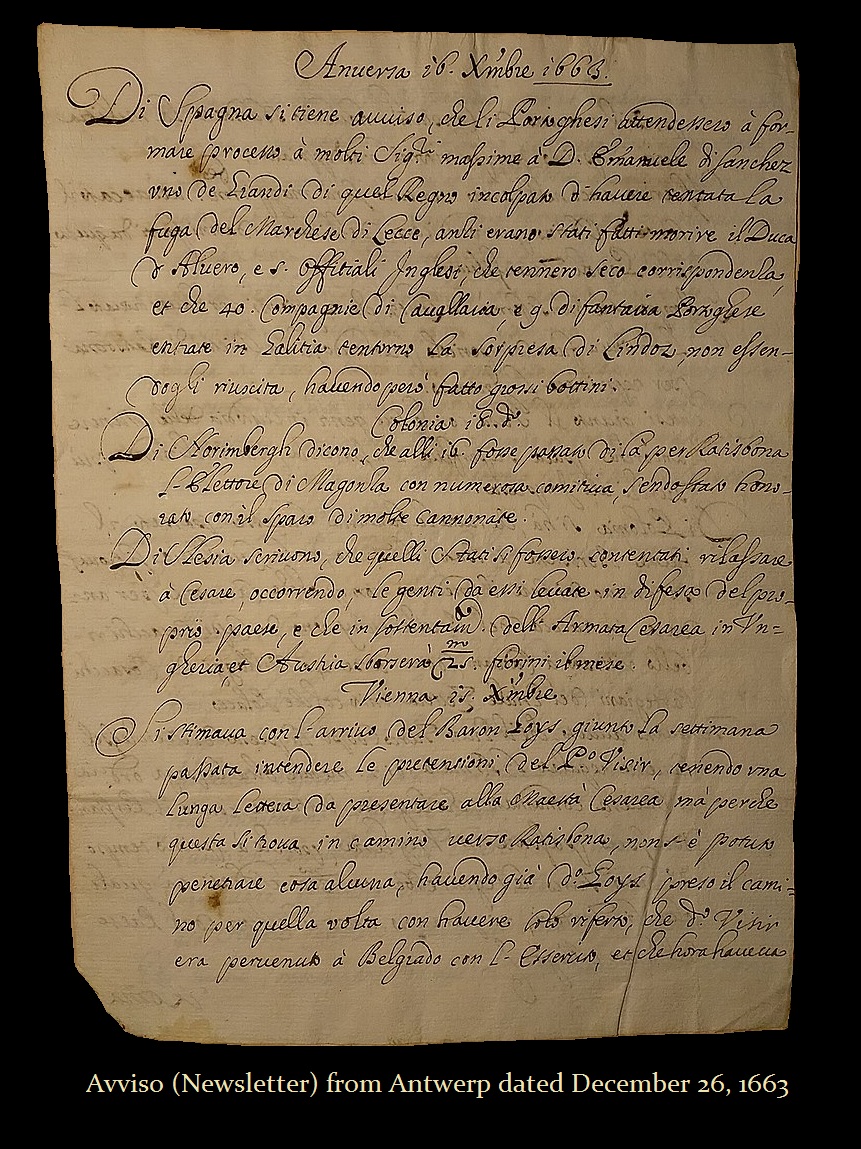 Anversa 16. Xmbre 1663.
Di Spagna si tiene avviso, che li Portoghesi attendessero à for-
mare processo à molti Sigri massime à D. Emanuele di Sanchez
uno de Grandi di quel Regno incolpato d'havere tentata la
fuga del Marchese di Lecce, anzi erano stati fatti morire il Duca
d'Alvero, e s. Offitiali Inglesi, che tennero seco corrispondenza,
et che 40. Compagnie di Cavallaria, e 9. di fantaria Portoghese
entrate in Galitia tentorno la sorpresa di Lindoz, non essen-
dogli riuscita, havendo però fatto grossi bottini.
Colonia 18. do
Di Norimbergh dicono, che alli 16. fosse passato di là per Ratisbona
l'Elettore di Magonza con numerosa comitiva sendo stato hono-
rato con il sparo di molte cannonate.
Di Slesia scrivono, che quelli Stati si fossero contentati rilassare
à Cesare, occorrendo, le genti da essi levate in difesa del pro-
prio paese, e che in sostentam.to dell'Armata Cesarea in Vn=
gheria, et Austria sborserà 25. fiorini il mese.
Vienna 15. Xmbre
Si stimava con l'arrivo del Baron Goys, giunto la settimana
passata intendere le pretensioni del Po Visir, tenendo una
lunga lettera da presentare alla Maestà Cesarea mà perche
questa si trova in camino verso Ratisbona, non s'è potuto
penetrare cosa alcuna, havendo già do Goys preso il cami=
no per quella volta con havere solo riferto, che do Visir
era pervenuto à Belgrado con l'Essercito, et che hora haveva
Avviso (Newsletter) from Antwerp dated December 26, 1663